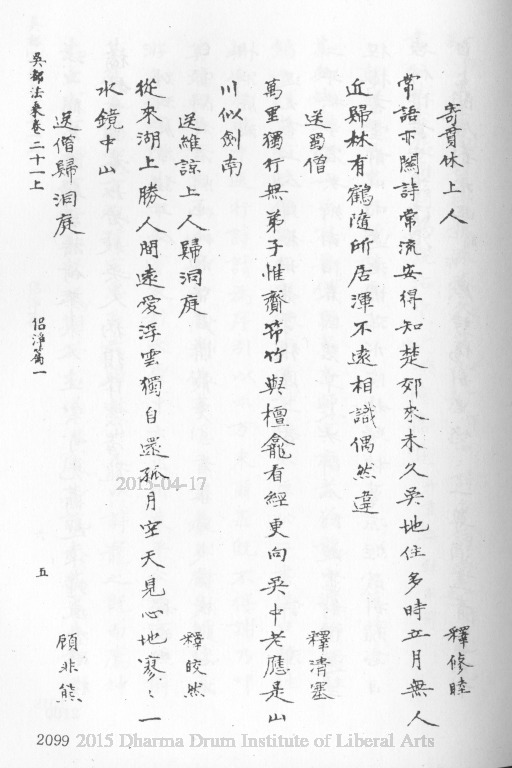 寄貫休上人　釋修睦
常語亦關詩常流安得知楚郊來未久吳地住多時立月無人
近歸林有鶴隨所居渾不遠相識偶然違
送蜀僧　釋清塞
萬里獨行無弟子惟齎筇竹與檀龕看經更向吳中老應是山
川似劍南
送維諒上人歸洞庭　釋皎然
從來湖上勝人間遠愛浮雲獨自還孤月空天見心地寥〻一
水鏡中山
送僧歸洞庭　顧非熊
吳都法乘卷二十一上　侶淨篇一　五
2099 2015 Dharma Drum Institute of Liberal Arts
2015-04-17